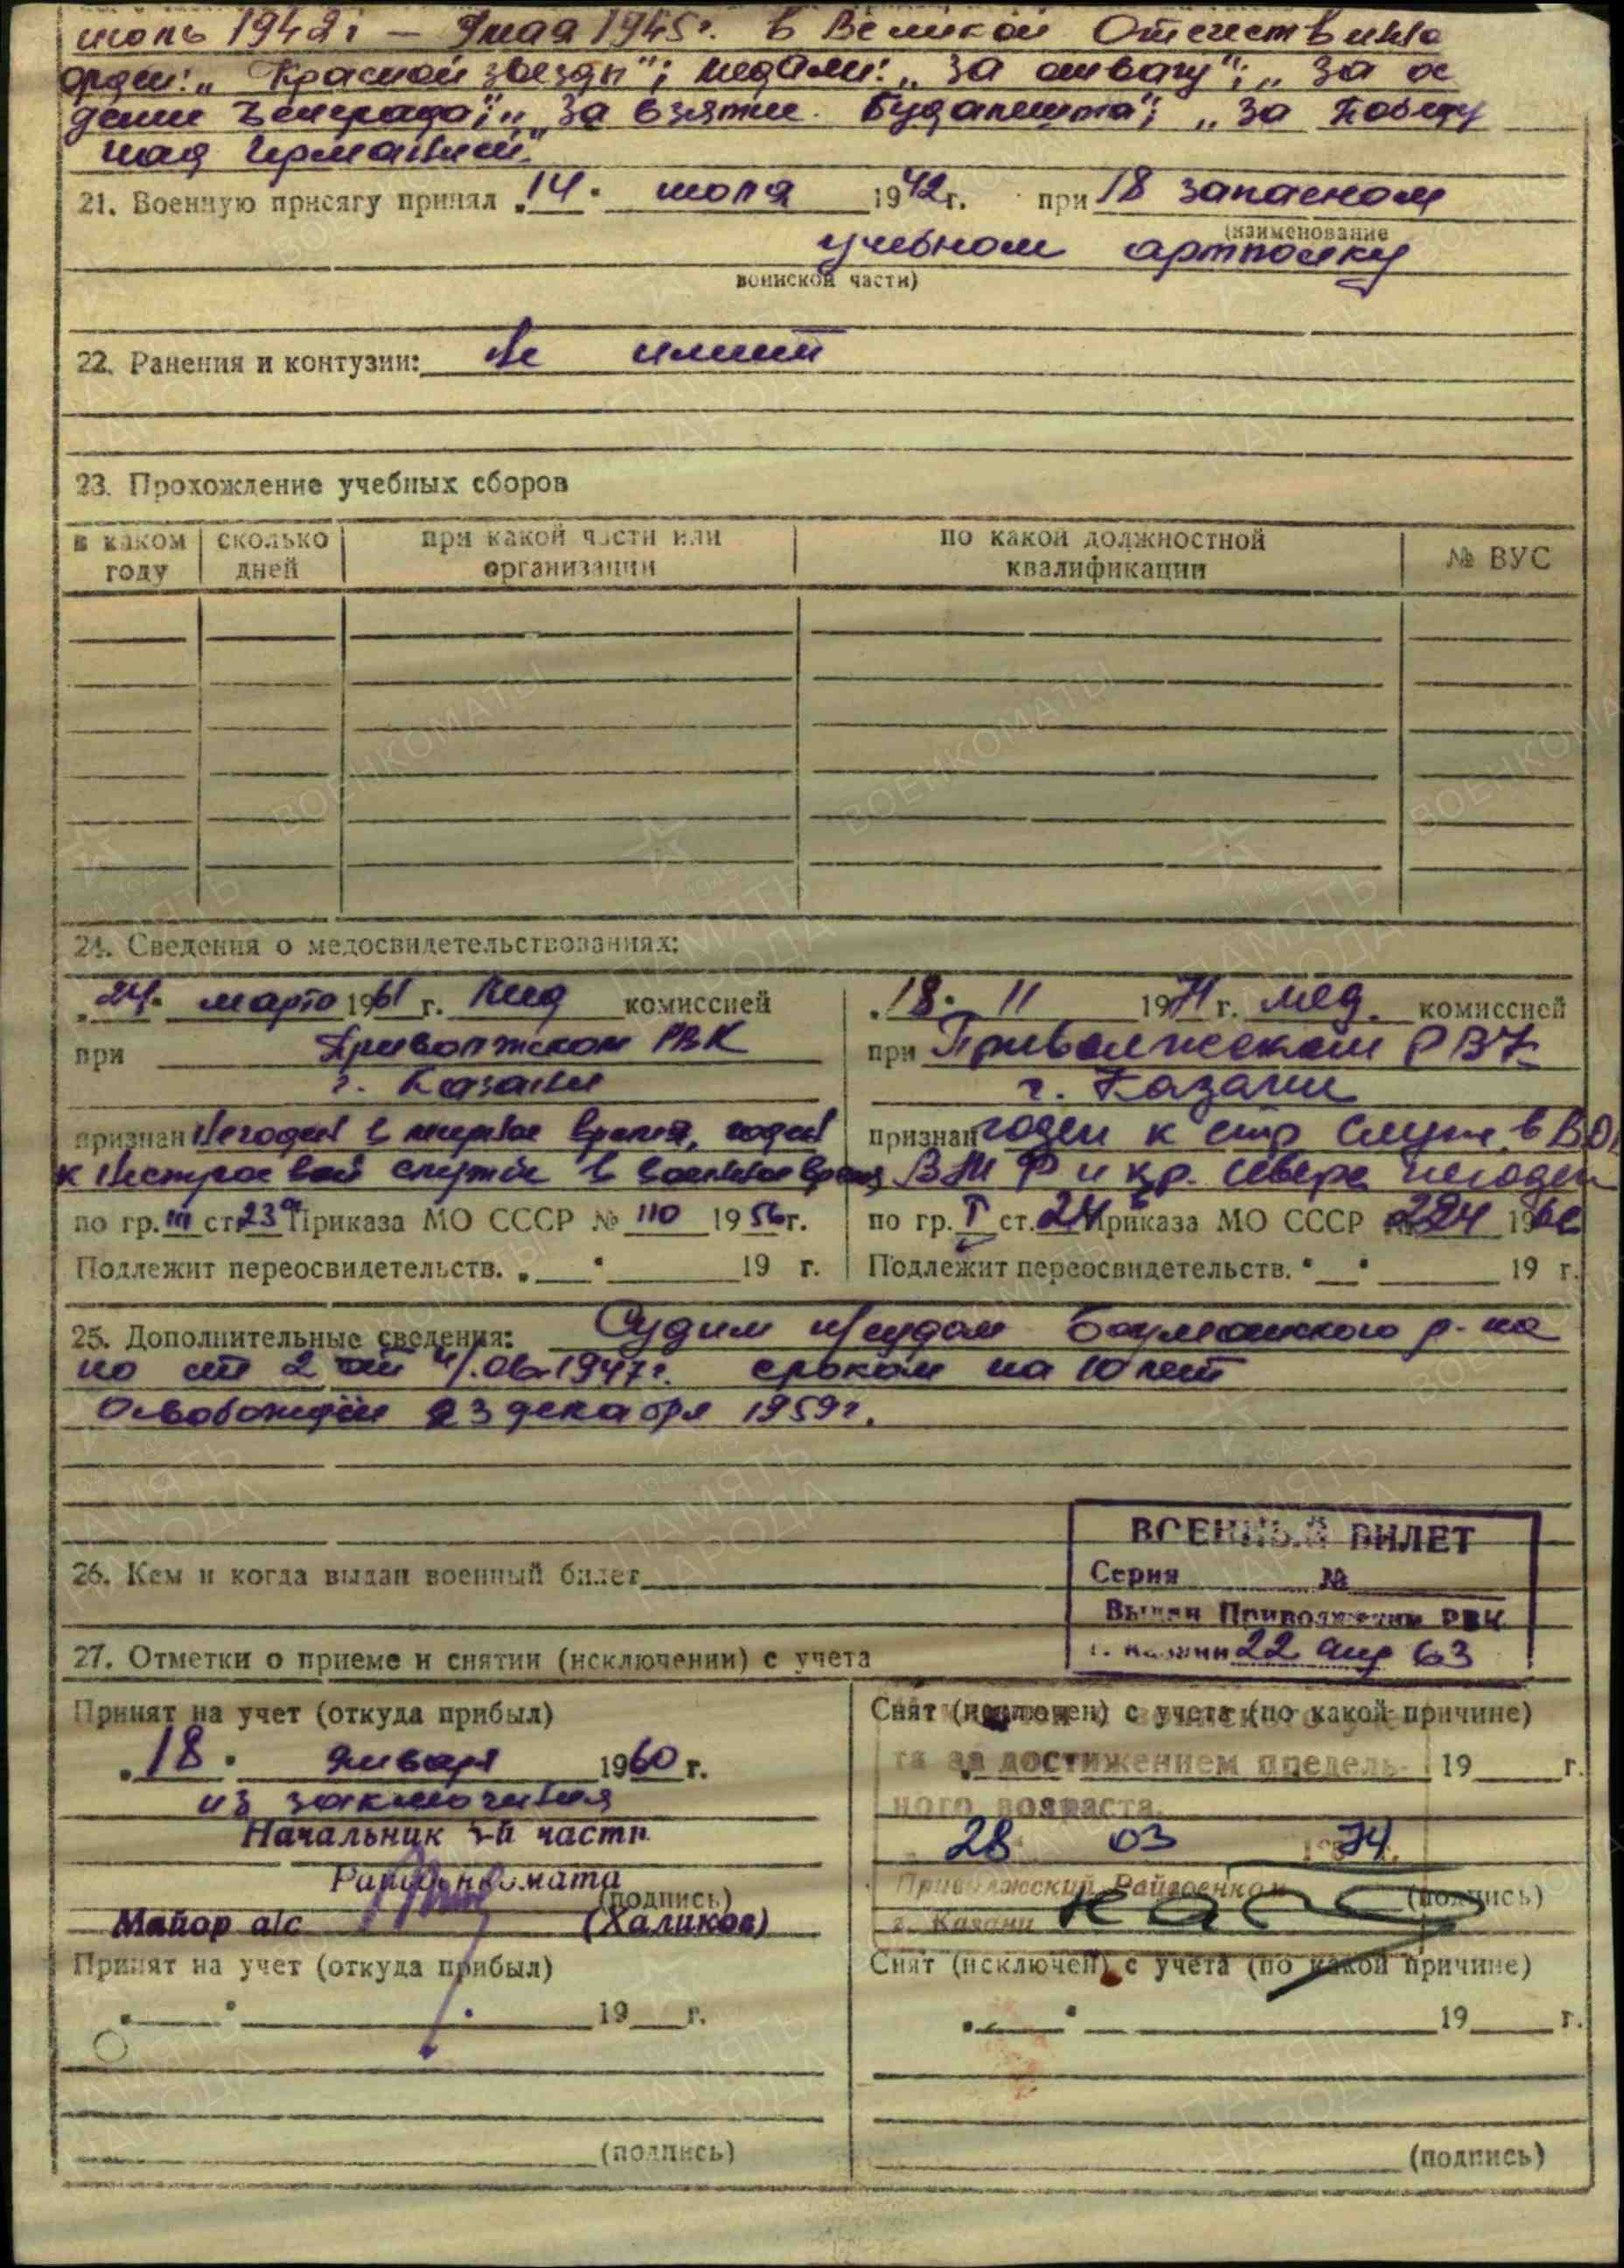 июль 1942г – 9 мая 1945г. в Великой Отечественно
орден: „Красной звезды"; медали: „За отвагу"; „За ос
дение Белграда"; „За взятие Будапешта"; „За Победу
над Германией"
21. Военную присягу принял „14" июля 1942г. при 18 запасном
(наименование
учебном артполку
воинской части)
22. Ранения и контузии: Не имеет
23. Прохождение учебных сборов
в каком году | сколько дней | при какой части или организации | по какой должностной квалификации | № ВУС
24. Сведения о медосвидетельствованиях:
„24" марта 1961 г. комиссией
при Приволжском РВК
г. Казани
признан Негоден в мирное время, годен
к нестроевой службе в военное время
по гр. III ст. 23а Приказа МО СССР № 110 1956г.
Подлежит переосвидетельств. „ " 19 г.
„18" 11 1971 г. мед. комиссией
при Приволжском РВК
г. Казани
признан годен к стр службе, в ВДВ
ВМФ и кр. севера негоден
по гр. I ст. 24 Приказа МО СССР № 224 1966
Подлежит переосвидетельств. „ " 19 г.
25. Дополнительные сведения: Судим Нсудом Бауманского р-на
по ст 2 от 4/.06.1947г. сроком на 10 лет
Освобождён 23 декабря 1959г.
26. Кем и когда выдан военный билет
ВОЕННЫЙ БИЛЕТ
Серия №
Выдан Приволжским РВК
г. Казани 22 апр 63
27. Отметки о приеме и снятии (исключении) с учета
Принят на учет (откуда прибыл)
„18" января 1960 г.
из заключения
Начальник 3-й части
Райвоенкомата
(подпись)
Майор а/с (Халиков)
Принят на учет (откуда прибыл)
„ " 19 г.
(подпись)
Снят (исключен) с учета (по какой причине)
та за достижением предель- 19 г.
ного возраста.
28 03 1974.
Приволжский Райвоенком
(подпись)
г. Казани
Снят (исключен) с учета (по какой причине)
„ " 19 г.
(подпись)